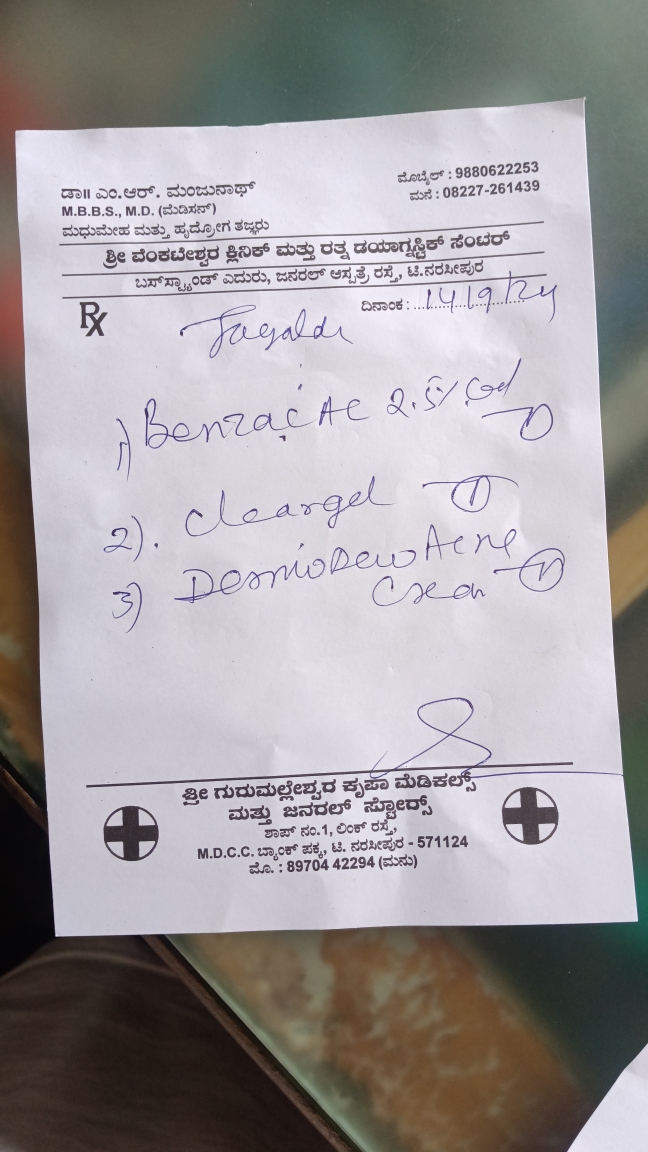 ಡಾ॥ ಎಂ.ಆರ್. ಮಂಜುನಾಥ್
M.B.B.S., M.D. (ಮೆಡಿಸನ್)
ಮಧುಮೇಹ ಮತ್ತು ಹೃದ್ರೋಗ ತಜ್ಞರು
ಮೊಬೈಲ್ : 9880622253
ಮನೆ : 08227-261439
ಶ್ರೀ ವೆಂಕಟೇಶ್ವರ ಕ್ಲಿನಿಕ್ ಮತ್ತು ರತ್ನ ಡಯಾಗ್ನಸ್ಟಿಕ್ ಸೆಂಟರ್
ಬಸ್‌ಸ್ಟ್ಯಾಂಡ್ ಎದುರು, ಜನರಲ್ ಆಸ್ಪತ್ರೆ ರಸ್ತೆ, ಟಿ.ನರಸೀಪುರ
Rx
ದಿನಾಂಕ : 14/9/24
1) Benzac AC 2.5%
2). Cleargel 1
3) DermoDew Acne
Cream 1
ಶ್ರೀ ಗುರುಮಲ್ಲೇಶ್ವರ ಕೃಪಾ ಮೆಡಿಕಲ್ಸ್
ಮತ್ತು ಜನರಲ್ ಸ್ಟೋರ್ಸ್
ಶಾಪ್ ನಂ.1, ಲಿಂಕ್ ರಸ್ತೆ,
M.D.C.C. ಬ್ಯಾಂಕ್ ಪಕ್ಕ, ಟಿ. ನರಸೀಪುರ - 571124
ಮೊ. : 89704 42294 (ಮನು)